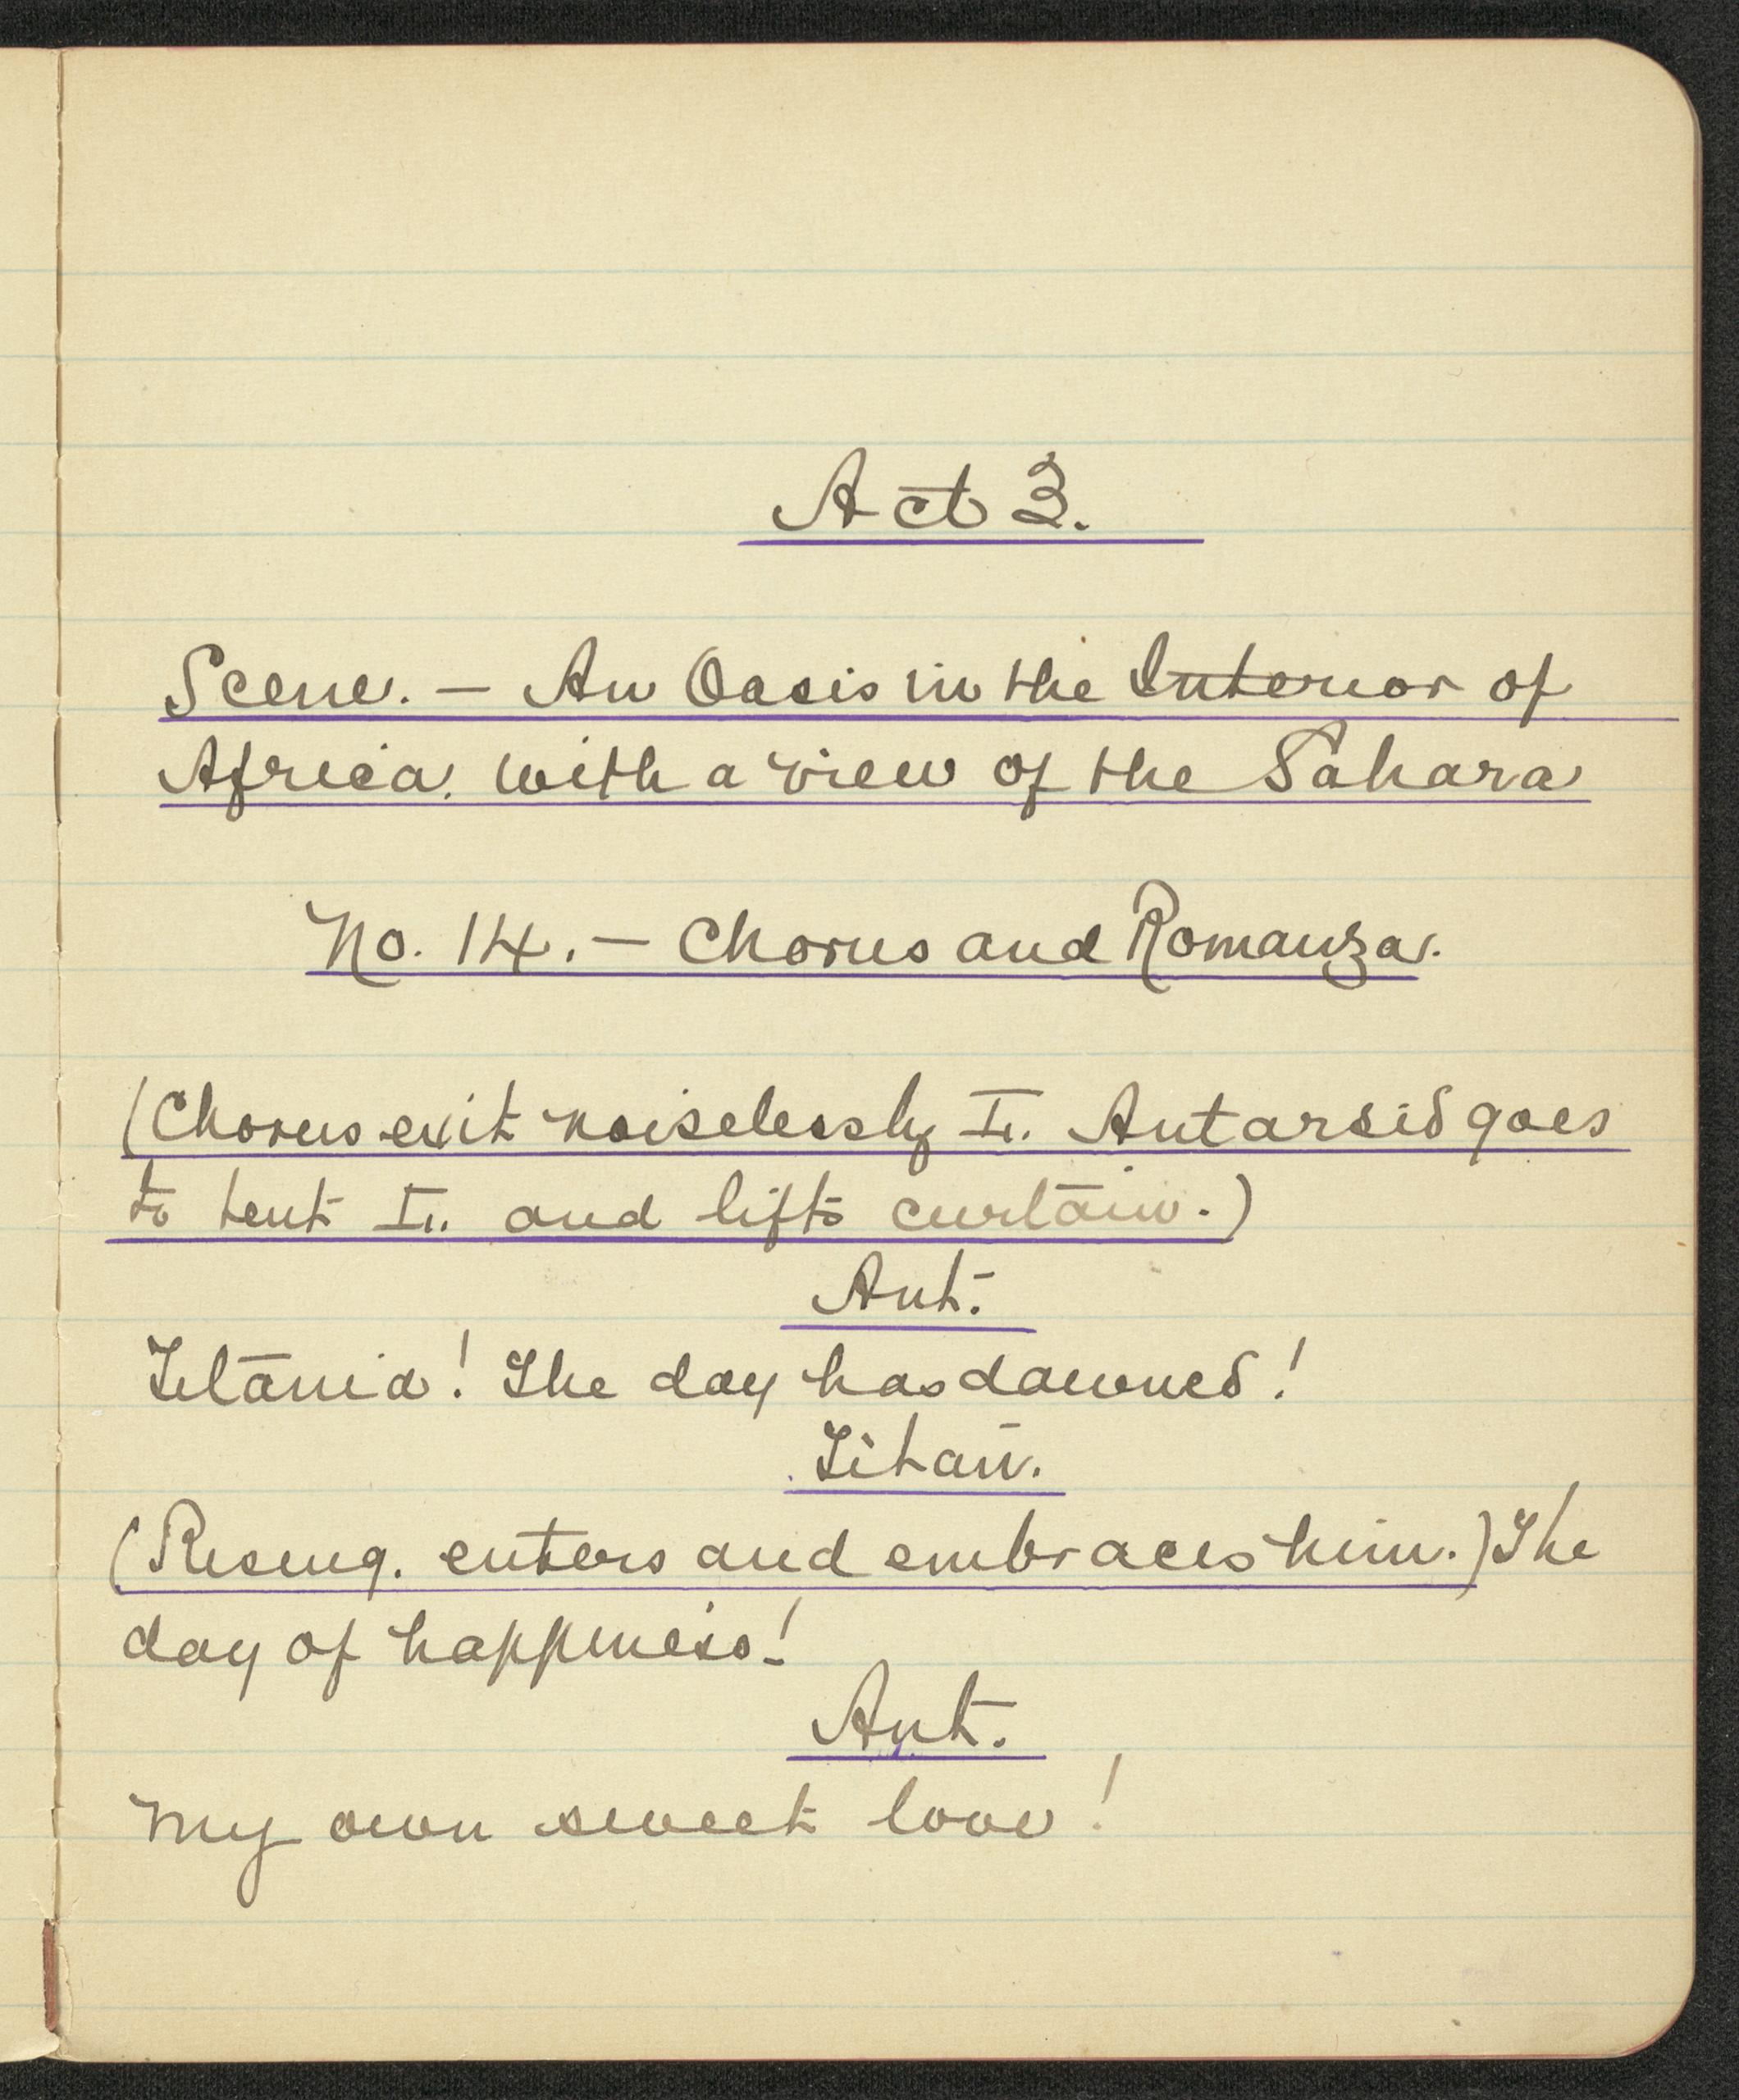 Act 3.
Scene. — An Oasis in the Interior of
Africa. with a view of the Sahara
No. 14. — Chorus and Romanza.
(Chorus exit noiselessly L. Antarsid goes
to tent L. and lifts curtain.)
Ant.
Titania! The day has dawned!
Titan.
(Rising. enters and embraces him.) The
day of happiness!
Ant.
My own sweet love!